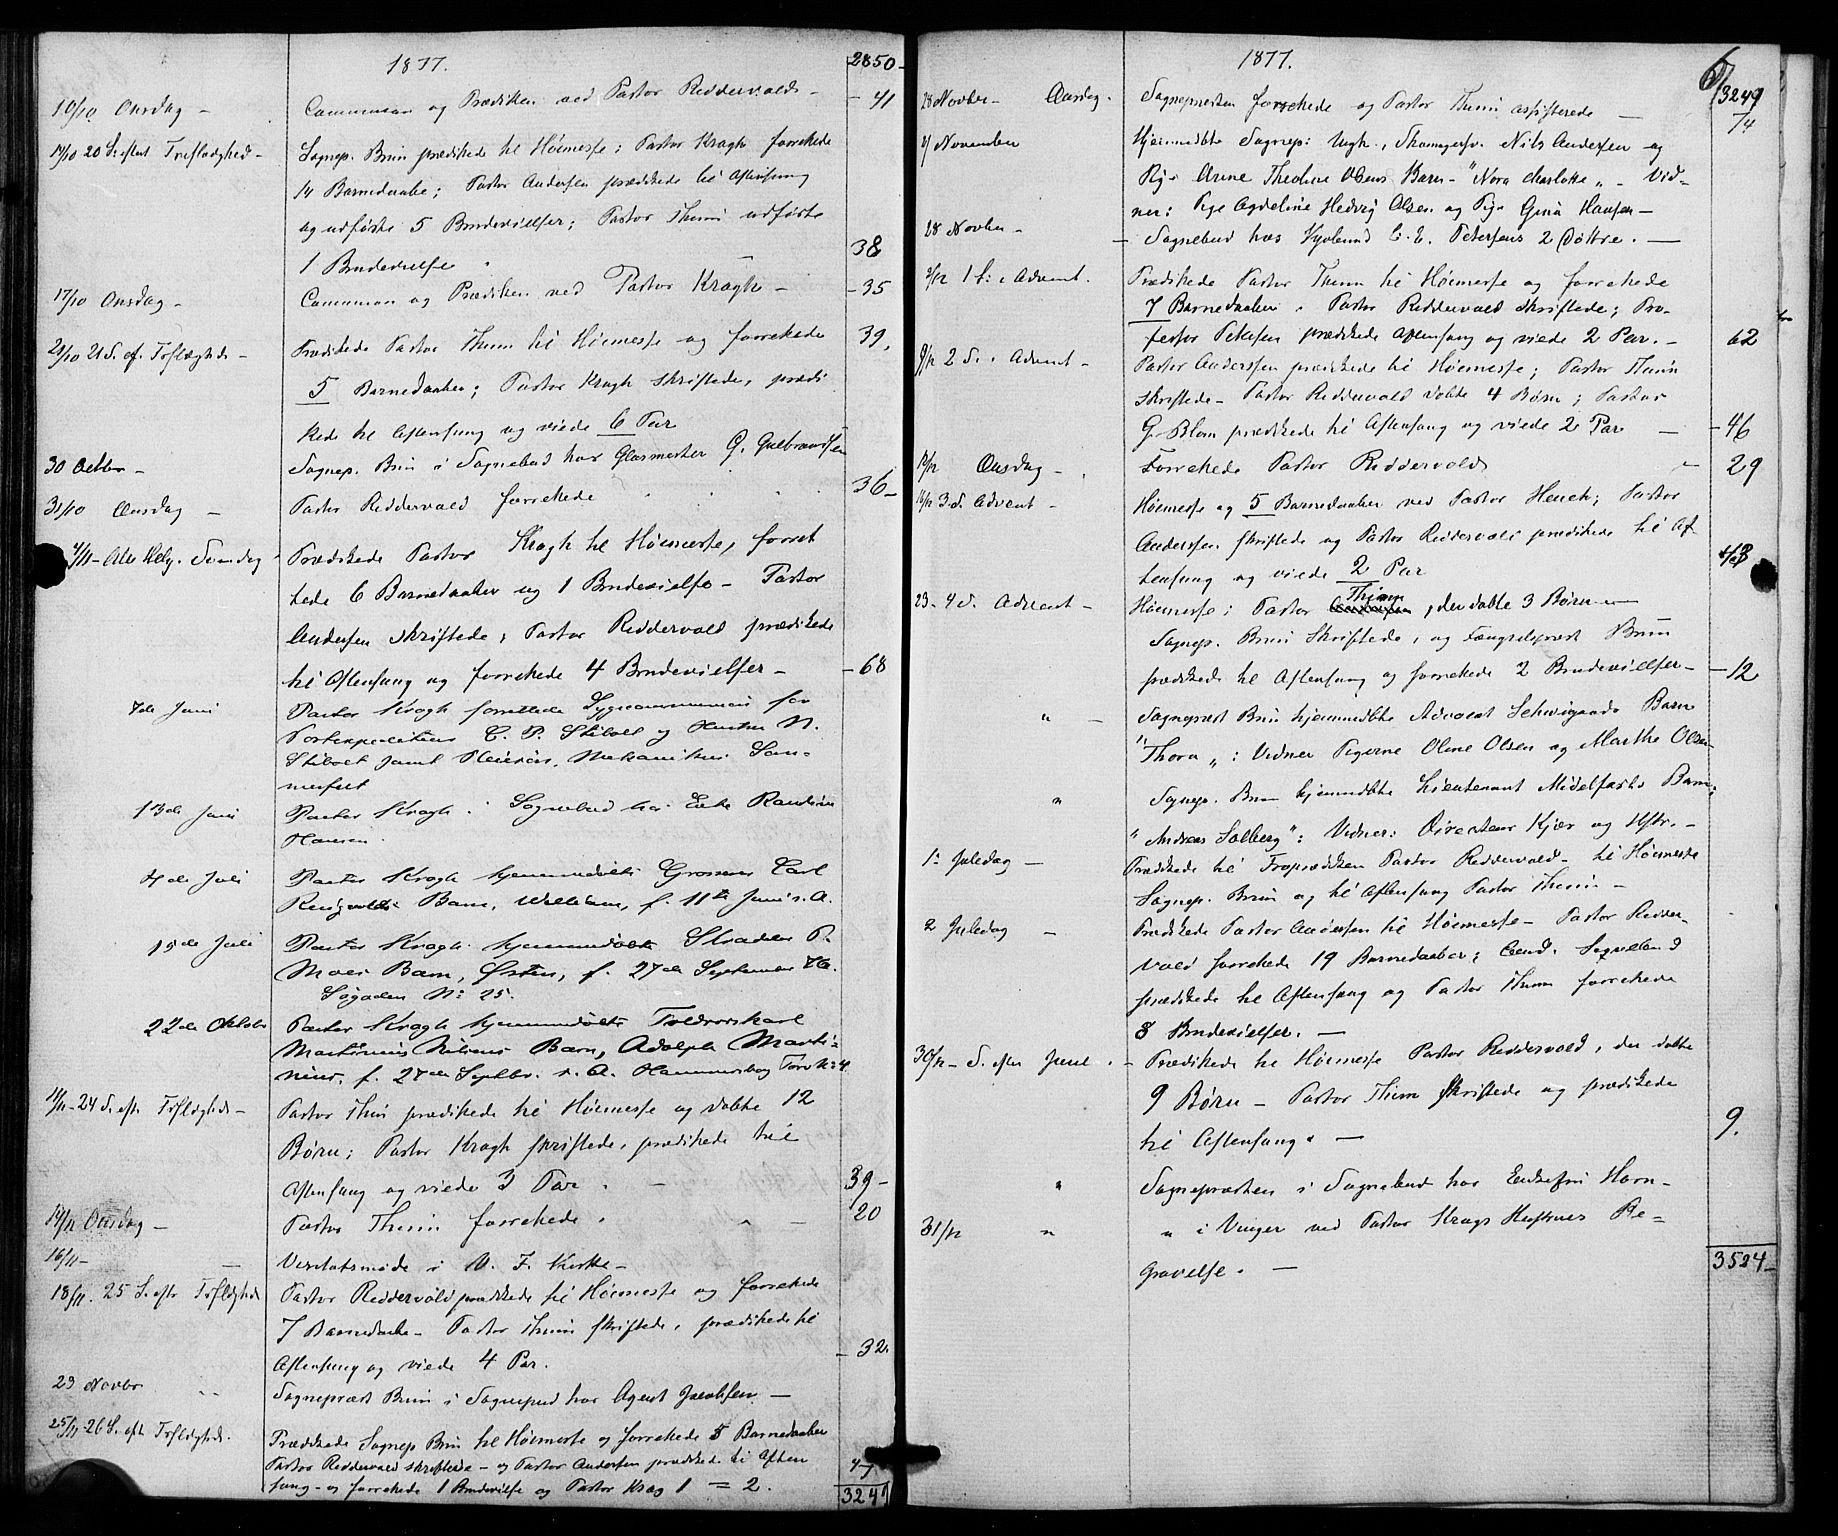 1877. 2850-
10/10 Onsdag - Communion og Prædiken ved Pastor Reddervold - - 41
14/10 20 S. efter Trefoldighed - Sognep. Bruun prædikede til Höimesse; Pastor Kragh forrettede
14 Barnedaabe; Pastor Andersen prædikede til Aftensang
og udförte 5 Brudevielser; Pastor Thuen udförte
1 Brudevielse 38
17/10 Onsdag - Communion og Prædiken ved Pastor Kragh - - 35
21/10 21 S. ef. Trefoldighed - Prædikede Pastor Thuen til Höimesse og forrettede 39.
5 Barnedaaber; Pastor Kragh skriftede, prædi
kede til Aftensang og viede 6 Par
30 Octbr - Sognep. Bruun i Sognebud hos Glasmester G. Gulbrandsen
31/10 Onsdag - Pastor Reddervold forrettede 36-
4/11 - Alle Helg. Søndag Prædikede Pastor Kragh til Höimesse, forret
tede 6 Barnedaaber og 1 Brudevielse - Pastor
Andersen skriftede; Pastor Reddervold prædikede
til Aftensang og forrettede 4 Brudevielser - - 68
7de Juni Pastor Kragh forrettede Sygecommunion for
Postexpeditør C. P. Stibolt og Hustru N.
Stibolt samt Mekanikus Som-
merfelt
13de Juni Pastor Kragh i Sognebud hos Enke
Hansen.
4de Juli Pastor Kragh hjemmedøbte Grosserer Carl
Barn, William, f. 11te Juni s. A.
15de Juli Pastor Kragh hjemmedøbte
Moes Barn, Østen, f. 27de September 76.
Søgaden No: 25.
22de Oktober Pastor Kragh hjemmedøbte Toldroerskarl
Martinius Nilsens Barn, Adolph Marti-
nius, f. 27de Septbr. s. A. Hammersborg Torv No 4
11/11 - 24 S. efter Trefoldighed - Pastor Thuen prædikede til Höimesse og döbte 12
Börn; Pastor Kragh skriftede, prædikede til
Aftensang og viede 3 Par. - 39-
14/11 Onsdag - Pastor Thuen forrettede. - 20
16/11 - Visitatsmøde i V. F. Kirke -
18/11. 25 S. efter Trefoldighed Pastor Reddervold prædikede til Höimesse og forrettede
7 Barnedaabe - Pastor Thuen skriftede, prædikede til
Aftensang og viede 4 Par. - 32.
23 Novbr Sognepræst Bruun i Sognebud hos Agent Jacobsen -
25/11 - 26 S. efter Trefoldighed. Prædikede Sognep. Bruun til Höimesse og forrettede 5 Barnedaaber
Pastor Reddervold skriftede - og Pastor Andersen prædikede til Aften
sang - og forrettede 1 Brudevielse og Pastor Krag 1 = 2. 47
3249
1877. 6
3249
28 Novber - Onsdag - Sognepresten forrettede og Pastor Thuen assisterede - 74
November Hjemmedöbte Sognep: Nils Andersen og
Pige Anne Theoline Olsens Barn - "Nora Charlotte" - Vid-
ner: Pige Agdeline Hedvig Olsen og Pige Gina Hansen -
28 Novbr - - Sognebud hos C. E. Petersens 2 Döttre. -
2/12 1 S. i Advent. Prædikede Pastor Thuen til Höimesse og forrettede
7 Barnedaaber. Pastor Reddervold skriftede; Pro-
fessor Petersen prædikede Aftensang og viede 2 Par. - 62
9/12 2 S. i Advent - Pastor Anderssen prædikede til Höimesse; Pastor Thuen
skriftede - Pastor Reddervold döbte 4 Börn; Pastor
G. Blom prædikede til Aftensang og viede 2 Par - - 46
12/12 Onsdag - Forrettede Pastor Reddervold - 29
16/12 3 S. Advent - Höimesse og 5 Barnedaaber ved Pastor Heuch; Pastor
Anderssen skriftede og Pastor Reddervold prædikede til Af-
tensang og viede 2 Par 48
23 - 4 S. Advent - Höimesse: Pastor Thuen, der döbte 3 Börn -
Sognep. Bruun skriftede, og Fængselspræst Bruun
prædikede til Aftensang og forrettede 2 Brudevielser - - 12
" - Sognepræst Bruun hjemmedöbte Advocat Schweigaards Barn
"Thora": Vidner Pigerne Oline Olsen og Marthe Olsen -
" Sognep. Bruun hjemmedöbte Lieutenant Midelfarts Barn
"Andreas Solberg": Vidner: Directeur Kjær og Hstr. -
1ste Juledag - Prædikede til Froprædiken Pastor Reddervold - til Höimesse
Sognep. Bruun og til Aftensang Pastor Thuen -
2 Juledag - Prædikede Pastor Andersen til Höimesse - Pastor Redder-
vold forrettede 19 Barnedaaber; Cand.
prædikede til Aftensang og Pastor Thuen forrettede
8 Brudevielser. -
30/12 - S. efter Juul. - Prædikede til Höimesse Pastor Reddervold, der döbte
9 Börn - Pastor Thuen skriftede og prædikede
til Aftensang. - 9.
" Sognepræsten i Sognebud hos Enkefru Horn -
31/12 " " i Vinger ved Pastor Krags Hustrues Be-
gravelse. - 3524-